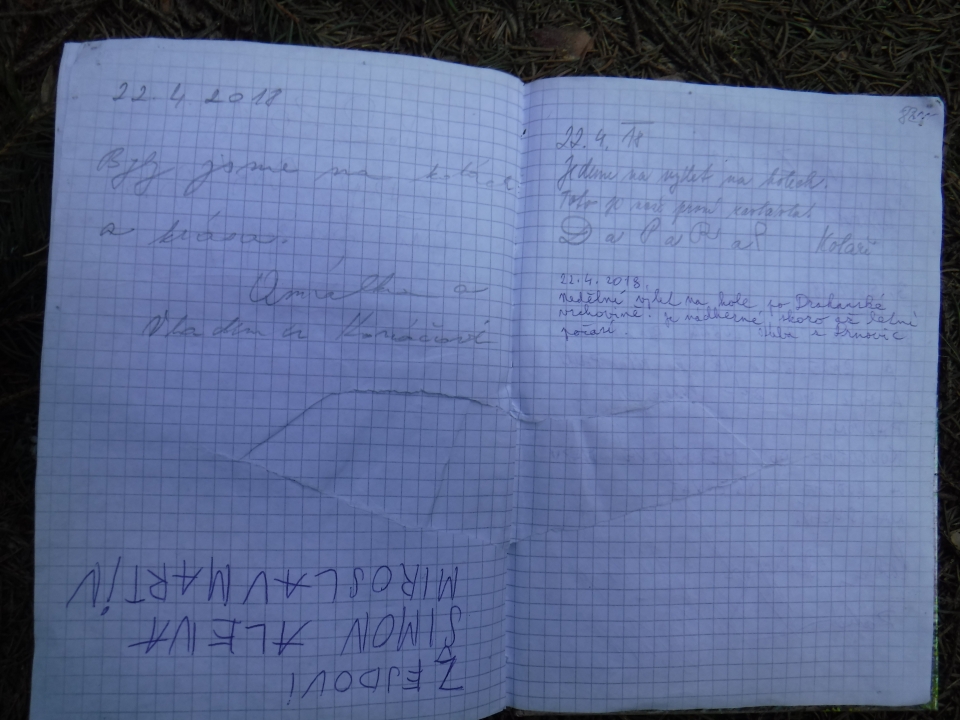 22.4 2018
Byly jsme na kolách
a krása.
Amálka a
Vladimír
ŽEJDOVI
ŠIMON ALENA
MIROSLAV MARTIN
22.4. 18
Jedeme na výlet na kolech.
Toto je první
D a P a R a P Kolaři
22.4.2018.
Nedělní výlet na kole po Drahanské
vrchovině. Je nádherné skoro až letní
počasí.